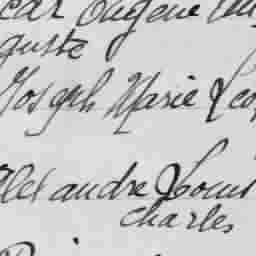 Eugene
guste
Joseph Marie Leo
Alexandre Louis
Charles